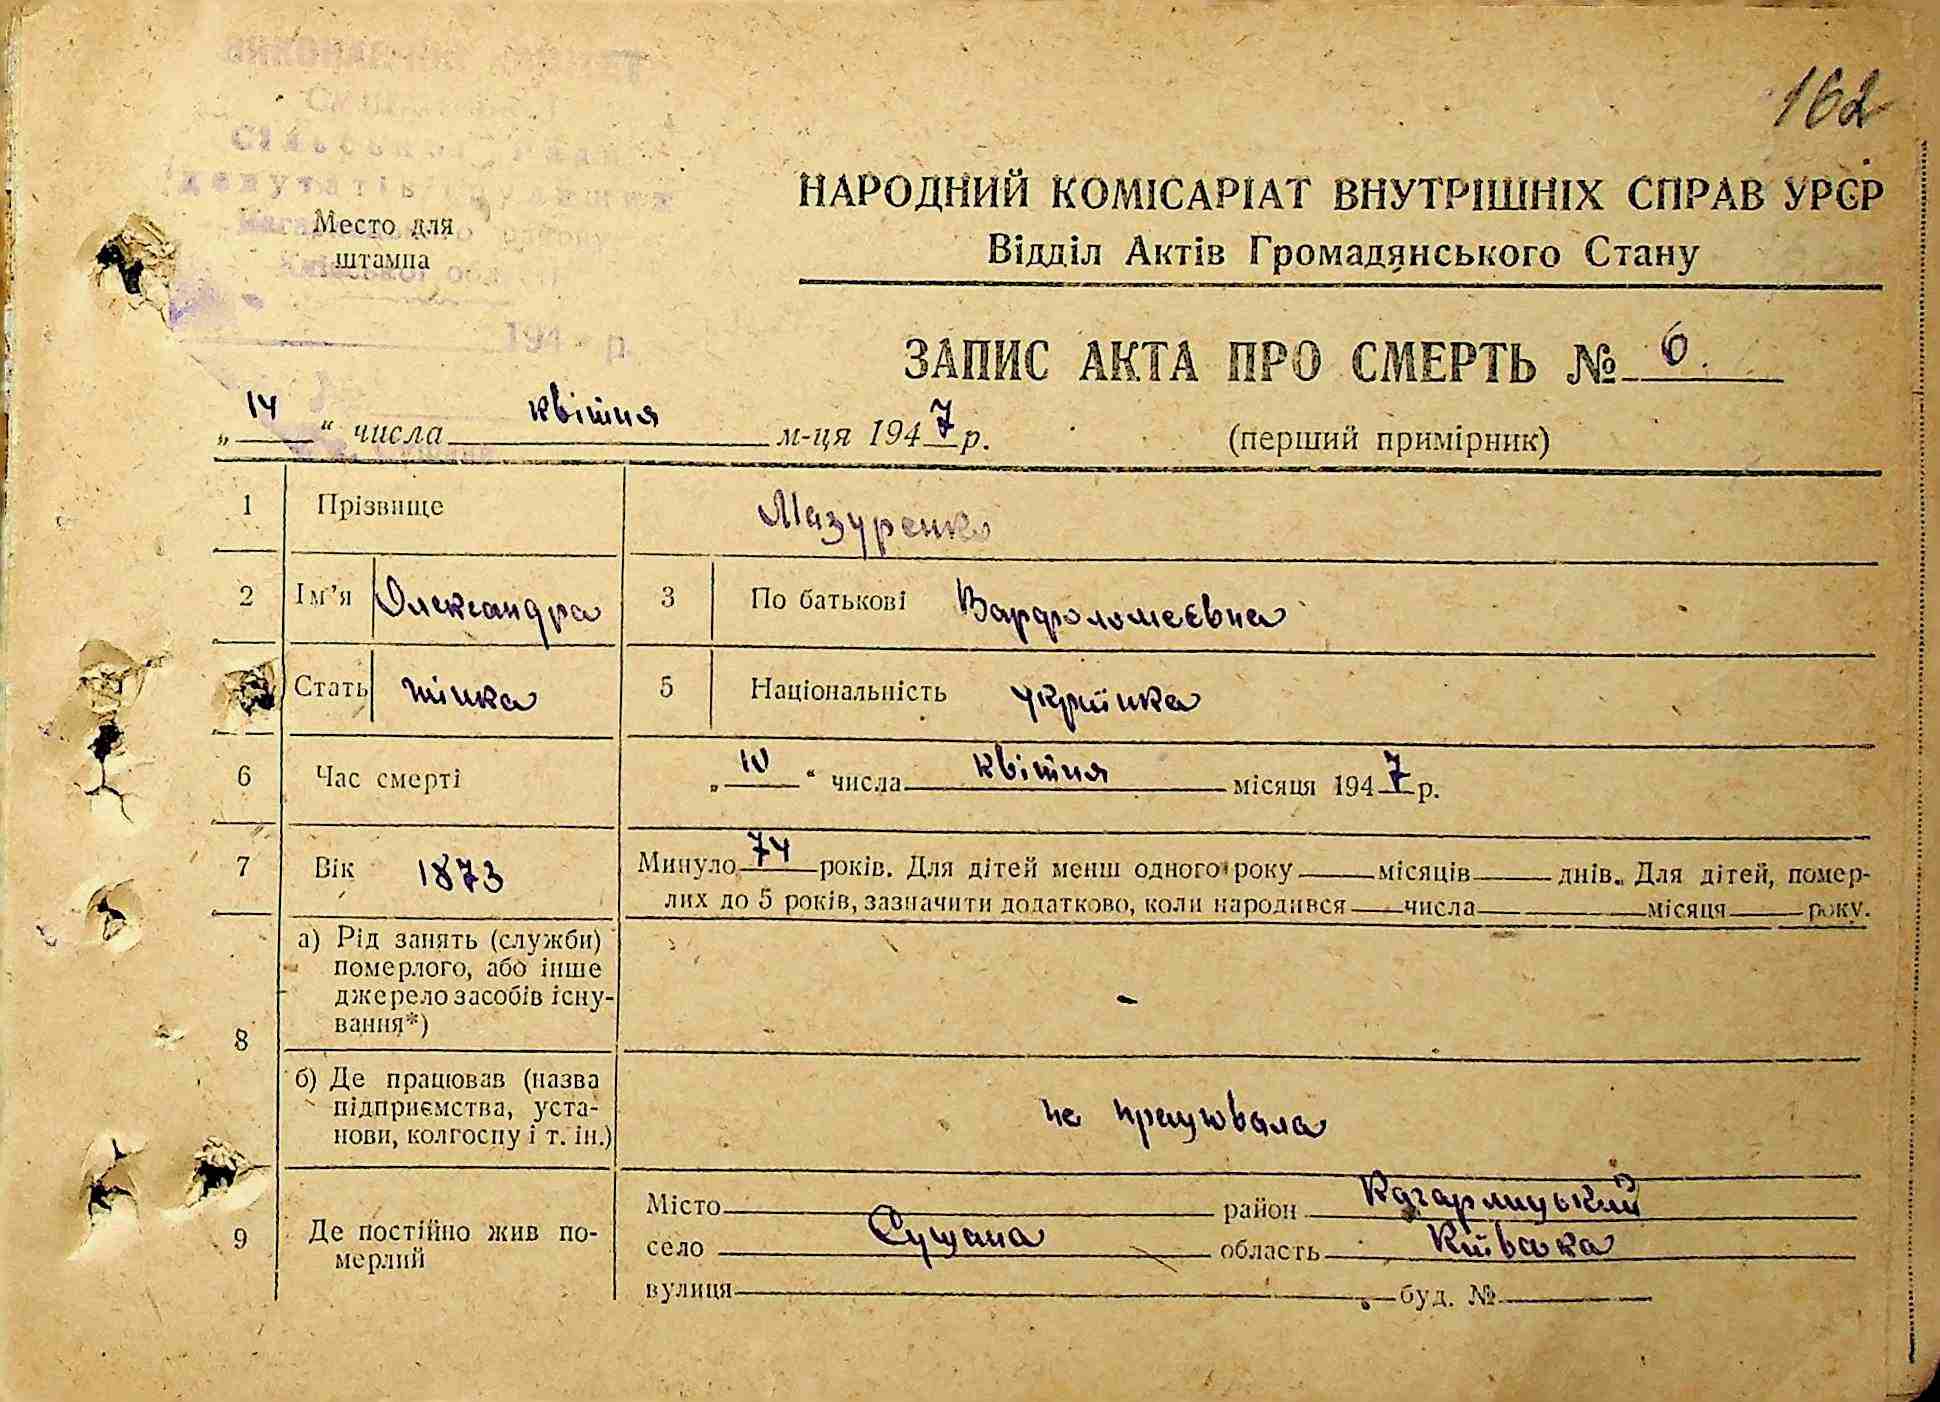 162
Сільської Ради
депутатів трудящих
Кагарлицького району
Київської області
Место для
штампа
194 р.
НАРОДНИЙ КОМІСАРІАТ ВНУТРІШНІХ СПРАВ УРСР
Відділ Актів Громадянського Стану
ЗАПИС АКТА ПРО СМЕРТЬ № 6.
„14“ числа квітня м-ця 1947 р.
(перший примірник)
1 Прізвище Мазуренко
2 Ім'я Олександра 3 По батькові Варфоломеєвна
Стать жінка 5 Національність украінка
6 Час смерті „10“ числа квітня місяця 1947 р.
7 Вік 1873 Минуло 74 років. Для дітей менш одного року місяців днів. Для дітей, помер-
лих до 5 років, зазначити додатково, коли народився числа місяця року.
8 а) Рід занять (служби)
померлого, або інше
джерело засобів існу-
вання*) -
б) Де працював (назва
підприємства, уста-
нови, колгоспу і т. ін.) не працювала
9 Де постійно жив по-
мерлий
Місто район Кагарлицький
село Сущана область Київська
вулиця буд. №